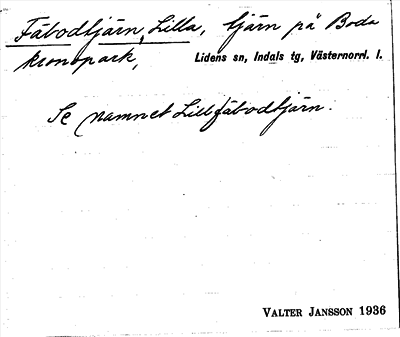 Fäbodtjärn, Lilla, tjärn på Boda
kronopark,
Lidens sn, Indals tg, Västernorrl. l.
Se namnet Lillfäbodtjärn.
VALTER JANSSON 1936